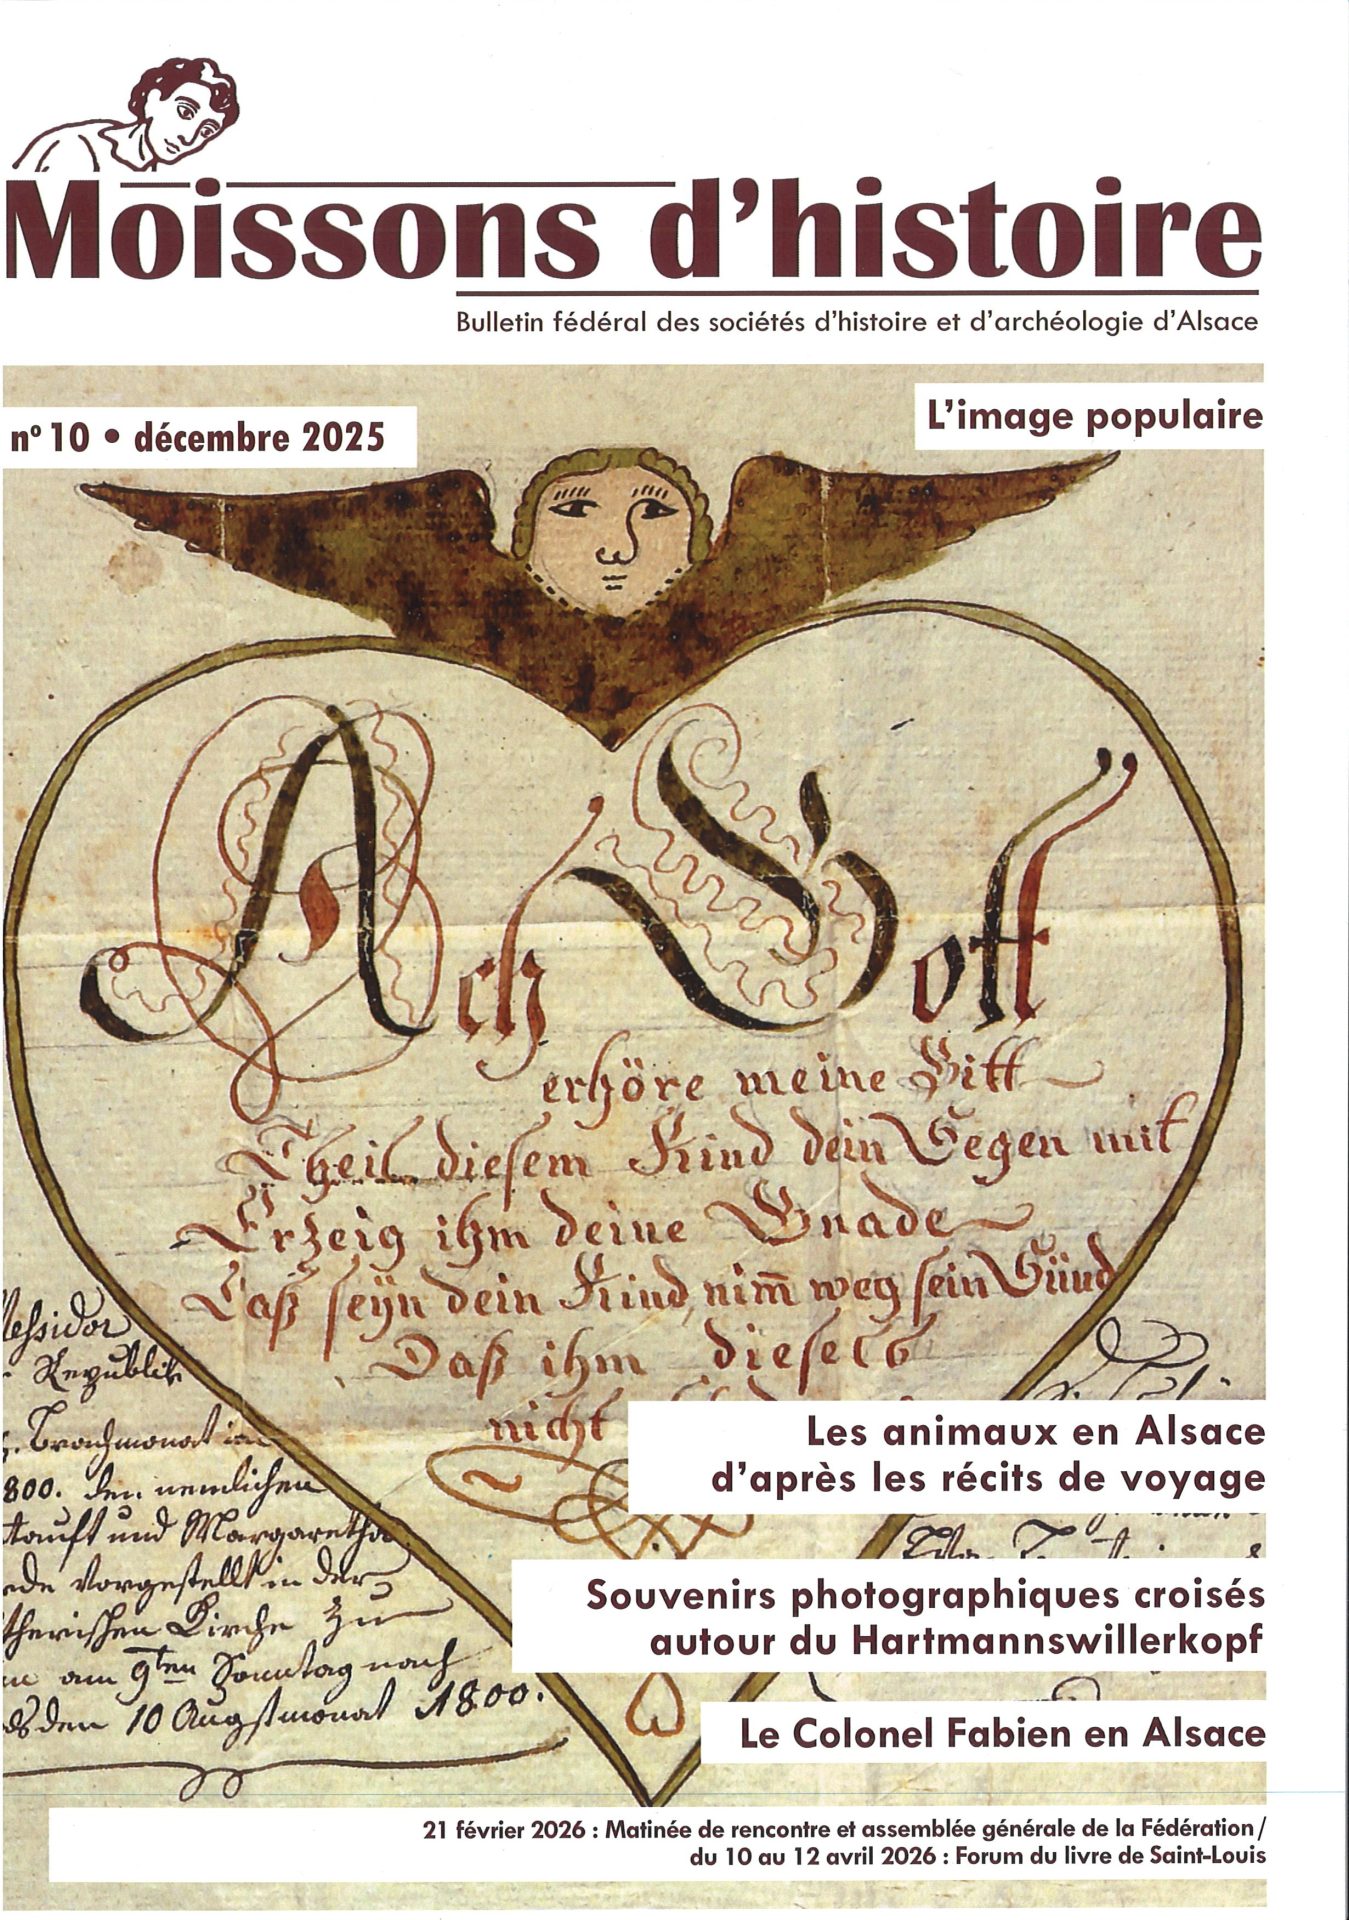 Moissons d'histoire
Bulletin fédéral des sociétés d'histoire et d'archéologie d'Alsace
n° 10 • décembre 2025
L'image populaire
Ach Gott
erhöre meine Bitt
Theil diesem Kind dein Segen mit
Erzeig ihm deine Gnade
Laß seyn dein Kind, nim̄ weg sein Sünd
Daß ihm dieselb
nicht
Messidor
Republik
Brachmonat im
1800. den nemlichen
tauft und Margaretha
vorgestellt in der
Kirche zu
am 9ten Sonntag nach
den 10 Augstmonat 1800.
Les animaux en Alsace
d'après les récits de voyage
Souvenirs photographiques croisés
autour du Hartmannswillerkopf
Le Colonel Fabien en Alsace
21 février 2026 : Matinée de rencontre et assemblée générale de la Fédération /
du 10 au 12 avril 2026 : Forum du livre de Saint-Louis